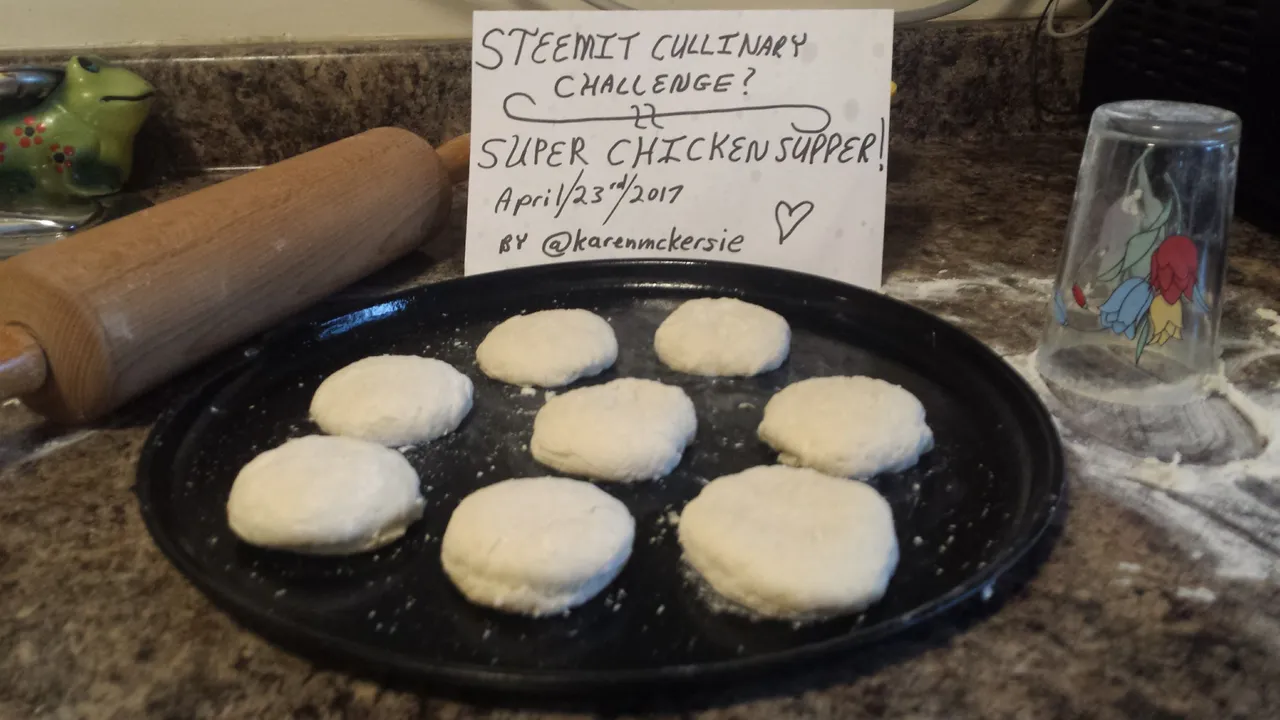 STEEMIT CULLINARY
CHALLENGE?
22
SUPER CHICKEN SUPPER!
April/23rd/2017
BY @karenmckersie